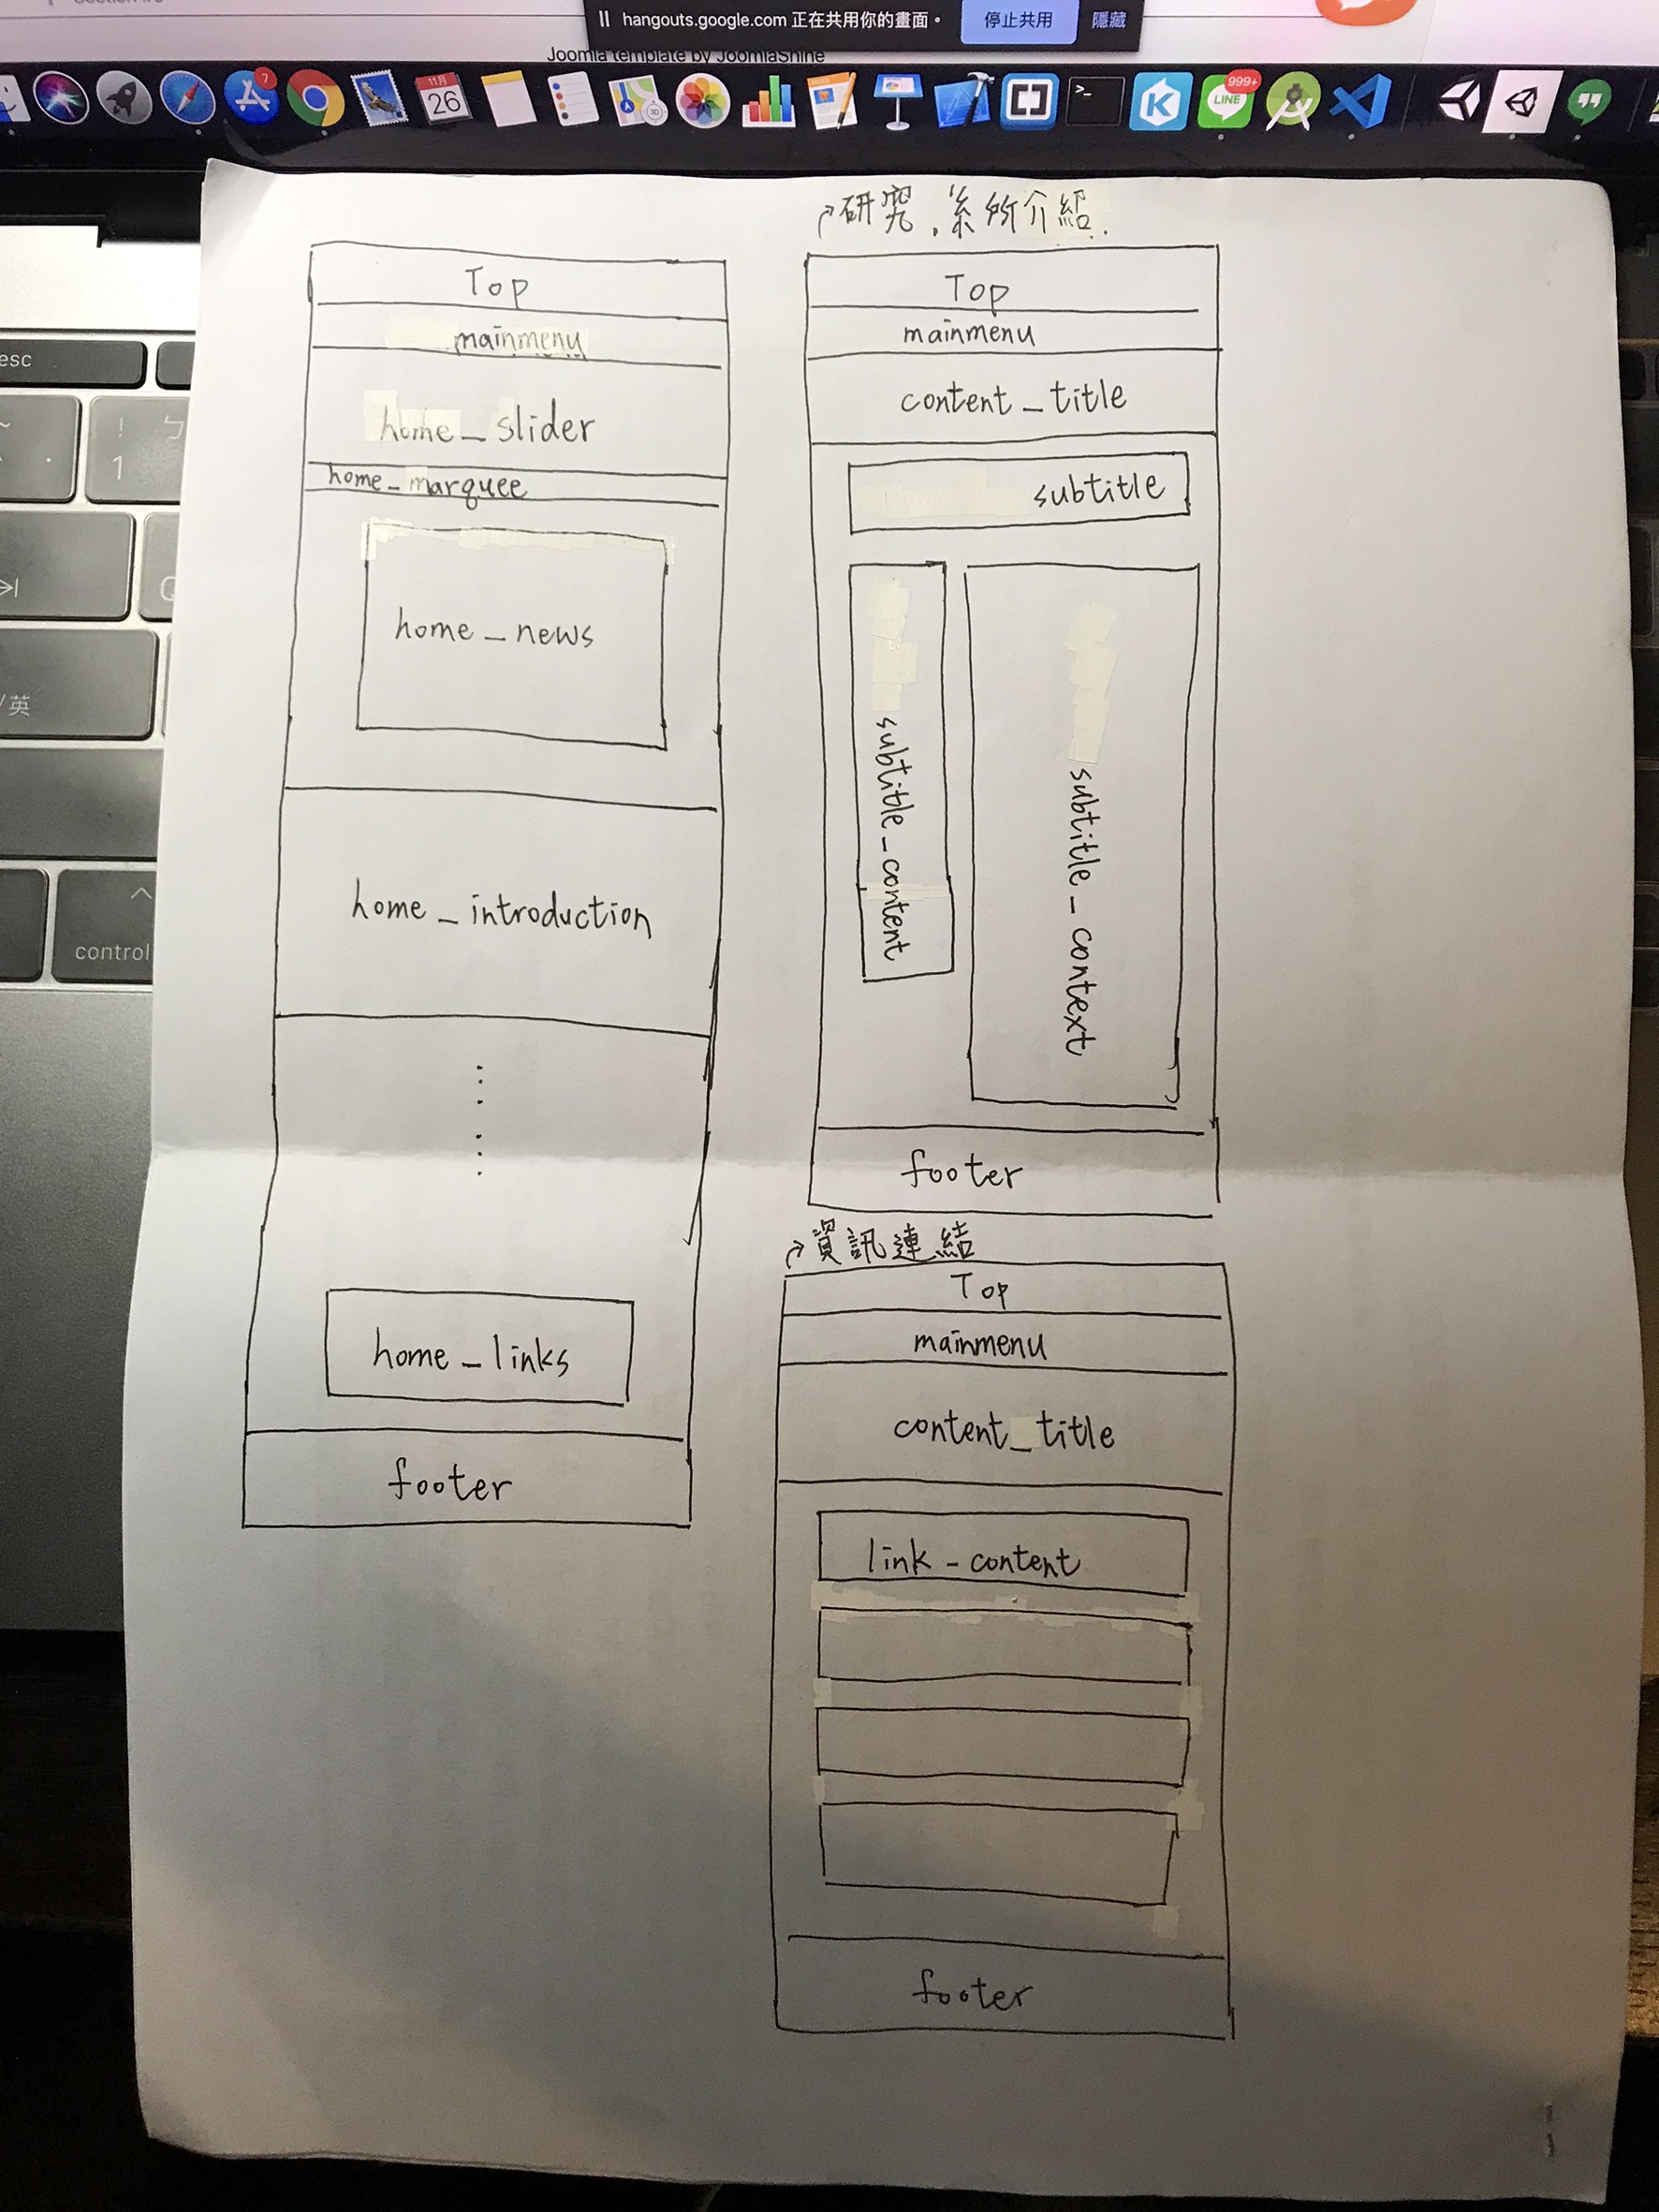 hangouts.google.com 正在共用你的畫面。
停止共用
隱藏
Joomla template by JoomlaShine
7
11月
26
999+
LINE
esc
!
ㄅ
1
Q
/英
control
Top
mainmenu
home_slider
home_marquee
home_news
home_introduction
home_links
footer
研究、系所介紹
Top
mainmenu
content_title
subtitle
subtitle_content
subtitle_context
footer
資訊連結
Top
mainmenu
content_title
link-content
footer